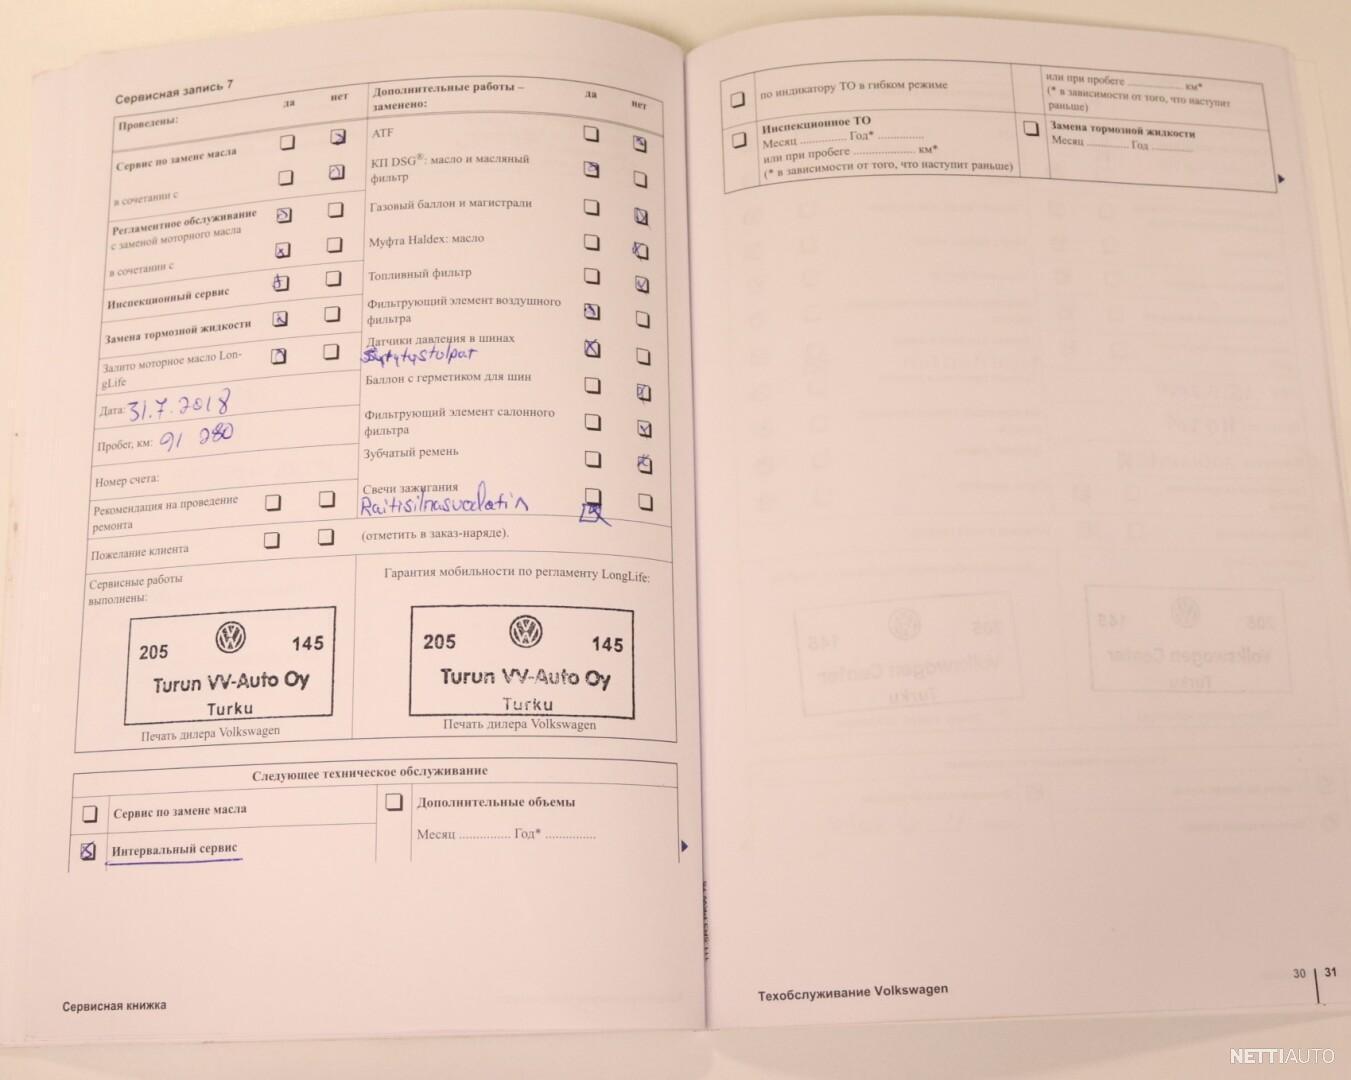 Сервисная запись 7
Проведены:
да
нет
Сервис по замене масла
в сочетании с
Регламентное обслуживание
с заменой моторного масла
в сочетании с
Инспекционный сервис
Замена тормозной жидкости
Залито моторное масло Lon-
gLife
Дата: 31.7.2018
Пробег, км: 91 280
Номер счета:
Рекомендация на проведение
ремонта
Пожелание клиента
Дополнительные работы –
заменено:
да
нет
ATF
КП DSG®: масло и масляный
фильтр
Газовый баллон и магистрали
Муфта Haldex: масло
Топливный фильтр
Фильтрующий элемент воздушного
фильтра
Датчики давления в шинах
Sytytystulpat
Баллон с герметиком для шин
Фильтрующий элемент салонного
фильтра
Зубчатый ремень
Свечи зажигания
Raitisilmasuodatin
(отметить в заказ-наряде).
Сервисные работы
выполнены:
205
145
Turun VV-Auto Oy
Turku
Печать дилера Volkswagen
Гарантия мобильности по регламенту LongLife:
205
145
Turun VV-Auto Oy
Turku
Печать дилера Volkswagen
Следующее техническое обслуживание
Сервис по замене масла
Интервальный сервис
Дополнительные объемы
Месяц ............... Год* ...............
Сервисная книжка
по индикатору ТО в гибком режиме
или при пробеге ............... км*
(* в зависимости от того, что наступит
раньше)
Инспекционное ТО
Месяц ............... Год* ...............
или при пробеге ............... км*
(* в зависимости от того, что наступит раньше)
Замена тормозной жидкости
Месяц ............... Год ...............
Техобслуживание Volkswagen
30
31
NETTIAUTO